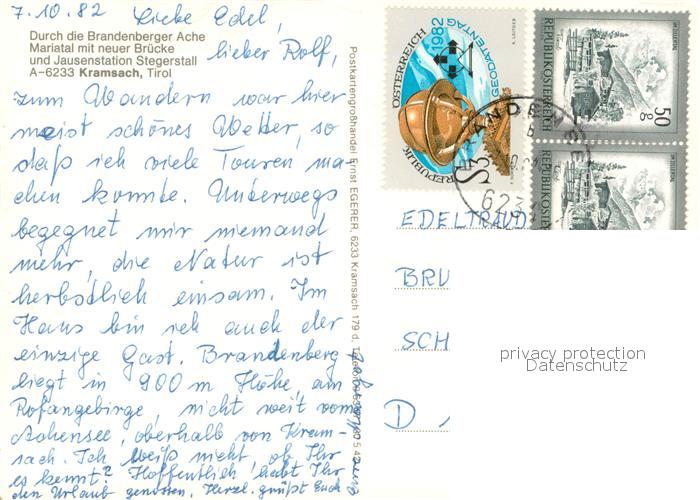 7.10.82 Liebe Edel,
lieber Rolf,
Durch die Brandenberger Ache
Mariatal mit neuer Brücke
und Jausenstation Stegerstall
A–6233 Kramsach, Tirol
zum Wandern war hier
meist schönes Wetter, so
daß ich viele Touren ma-
chen konnte. Unterwegs
begegnet mir niemand
mehr, die Natur ist
herbstlich einsam. Im
Haus bin ich auch der
einzige Gast. Brandenberg
liegt in 900 m Höhe, am
Rofangebirge, nicht weit vom
Achensee, oberhalb von Kram-
sach. Ich weiß nicht, ob Ihr
es kennt? Hoffentlich habt Ihr
den Urlaub genossen. Herzl. grüßt Euch
Postkartengroßhandel Ernst EGERER, 6233 Kramsach 179 d,
REPUBLIK ÖSTERREICH
GEODÄTENTAG 1982
S3
REPUBLIK ÖSTERREICH
50 g
REPUBLIK ÖSTERREICH
EDELTRAUD
BRU
SCH
D
privacy protection
Datenschutz